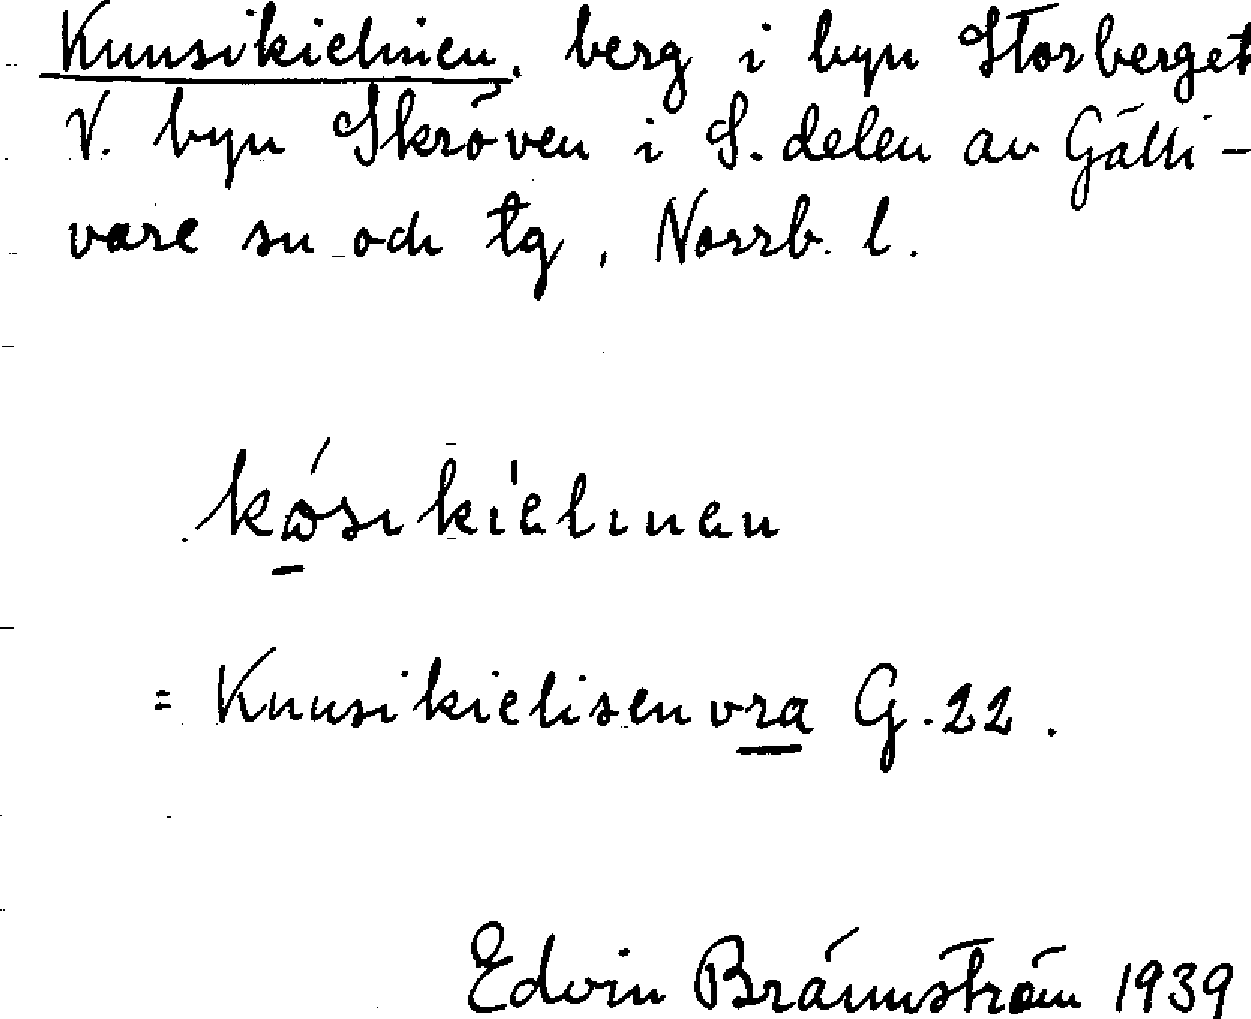 Kuusikielinen, berg i byn Storberget
V. byn Skröven i S. delen av Gälli-
vare sn och tg, Norrb. l.
kωsikielinen
= Kuusikielisenvra G. 22.
Edvin Brännström 1939